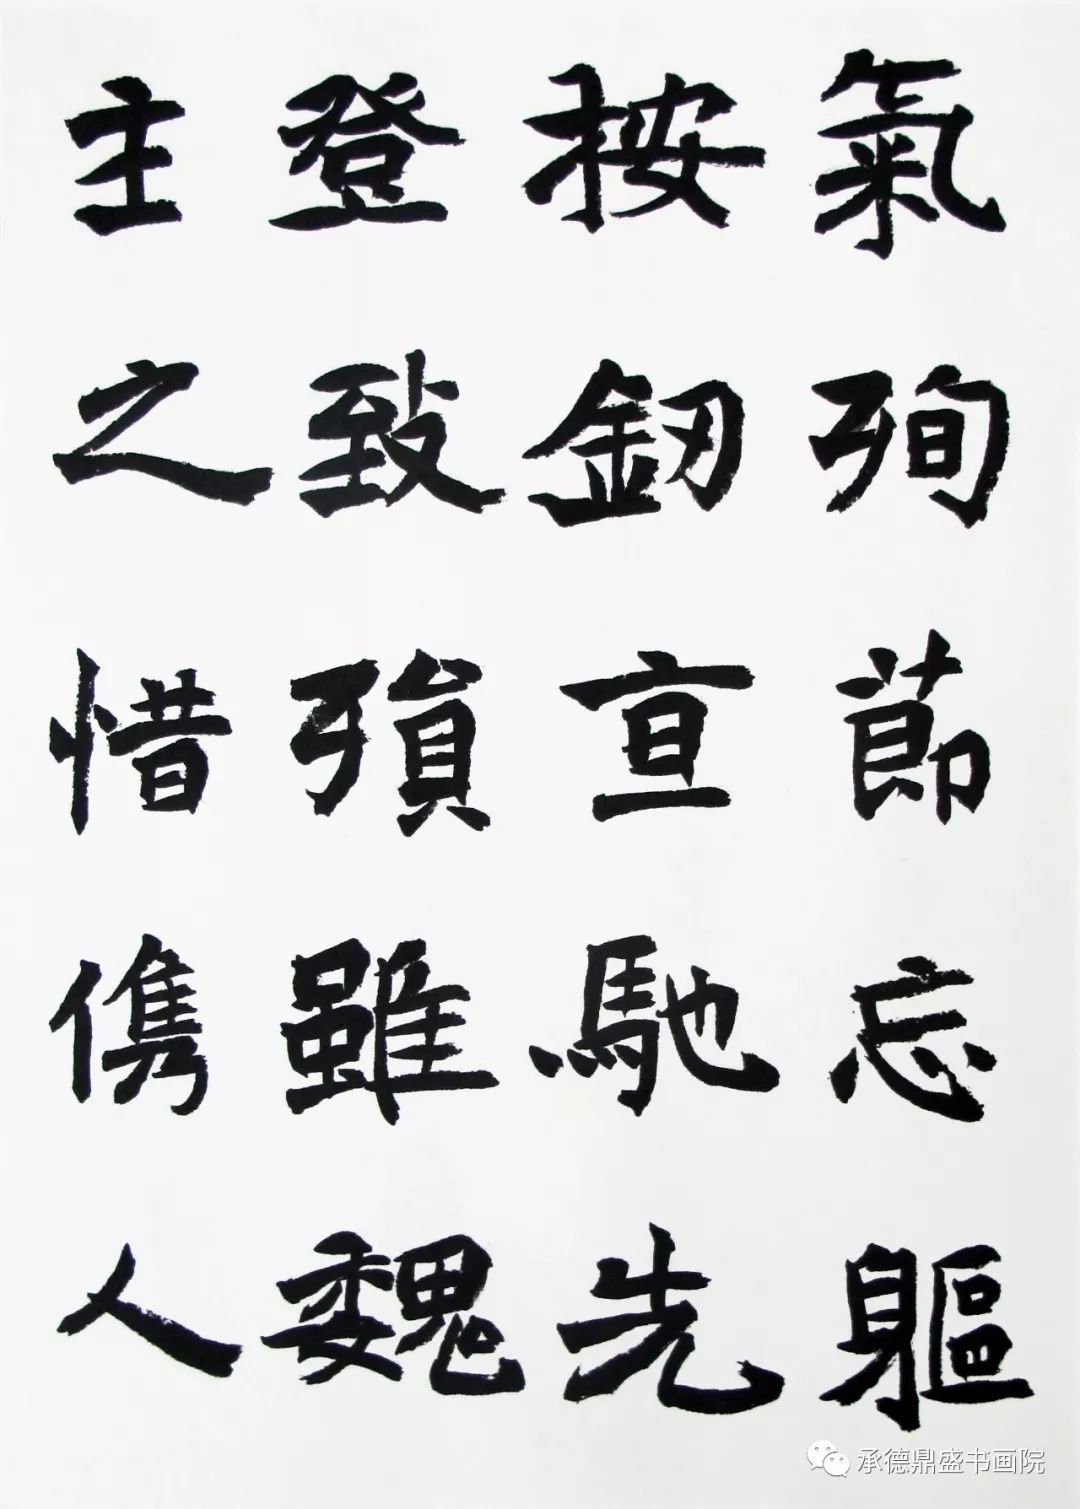 氣殉節忘軀
按釰亘馳先
登致殞雖魏
主之惜儁人
承德鼎盛书画院